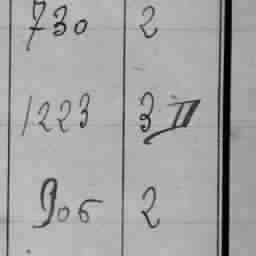 730 2
1223 3 II
906 2